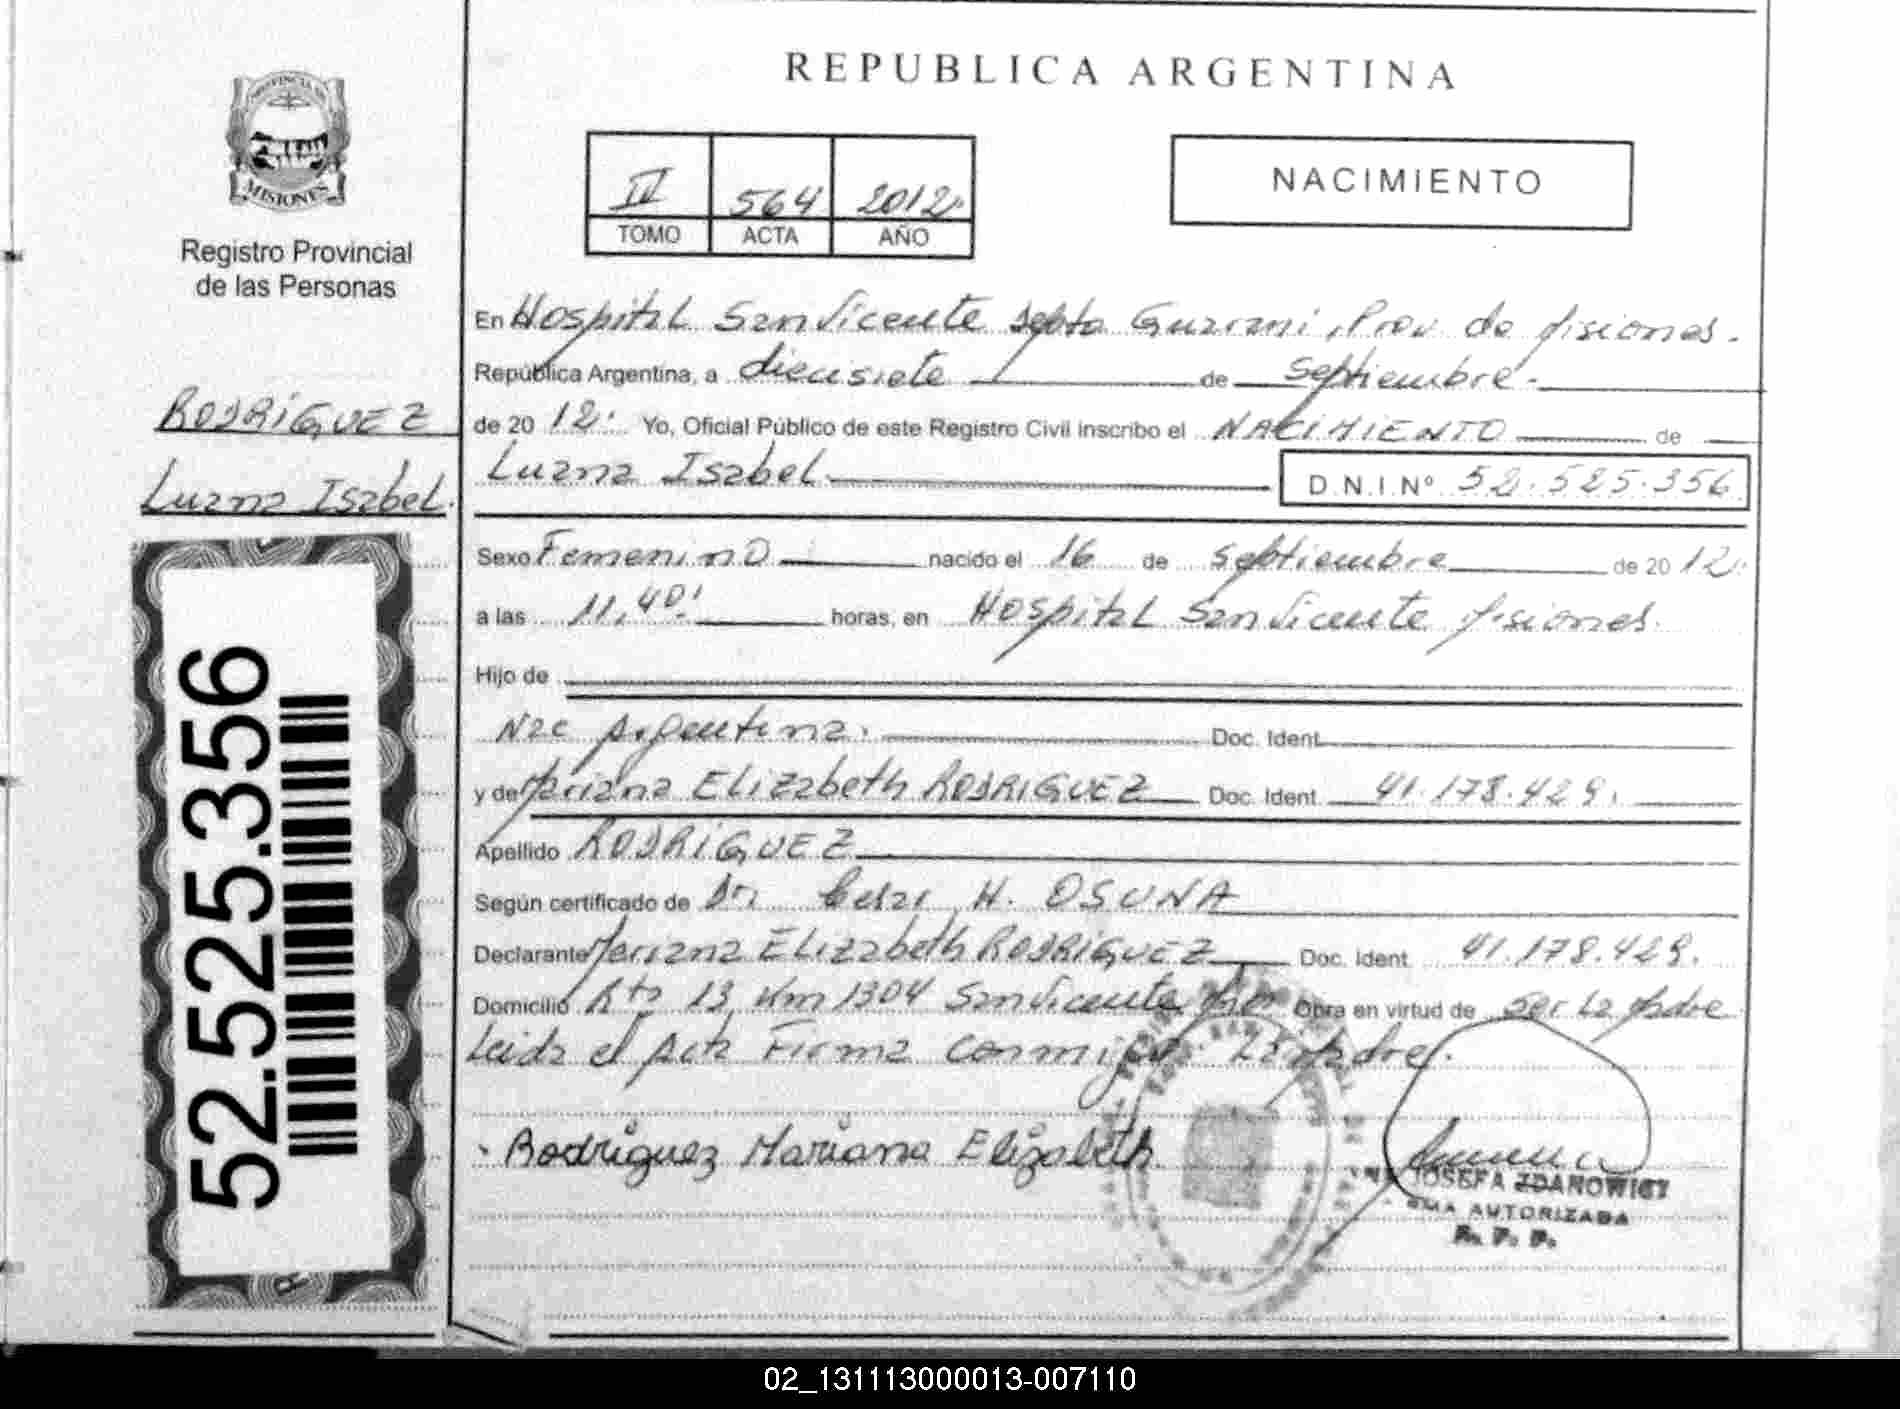 PROVINCIA DE
MISIONES
Registro Provincial
de las Personas
RODRÍGUEZ
Luana Isabel.
52.525.356
REPUBLICA ARGENTINA
IV 564 2012.
TOMO ACTA AÑO
NACIMIENTO
En Hospital San Vicente Dpto Guarani, Prov de Misiones.
República Argentina, a diecisiete de Septiembre.
de 20 12. Yo, Oficial Público de este Registro Civil inscribo el NACIMIENTO de
Luana Isabel. D.N.I.Nº 52.525.356
Sexo Femenino nacido el 16 de Septiembre de 20 12.
a las 11,40. horas, en Hospital San Vicente Misiones.
Hijo de
Nac Argentina. Doc. Ident.
y de Mariana Elizabeth RODRIGUEZ Doc. Ident. 41.178.429.
Apellido RODRÍGUEZ
Según certificado de Dr. Cesar H. OSUNA
Declarante Mariana Elizabeth RODRÍGUEZ Doc. Ident. 41.178.429.
Domicilio Rta 13 Km 1304 San Vicente Obra en virtud de Ser La Madre
Leida el Acta Firma Conmigo La Madre.
Rodríguez Mariana Elizabeth
JOSEFA ZDANOWICZ
AUTORIZADA
R. P. P.
02_131113000013-007110